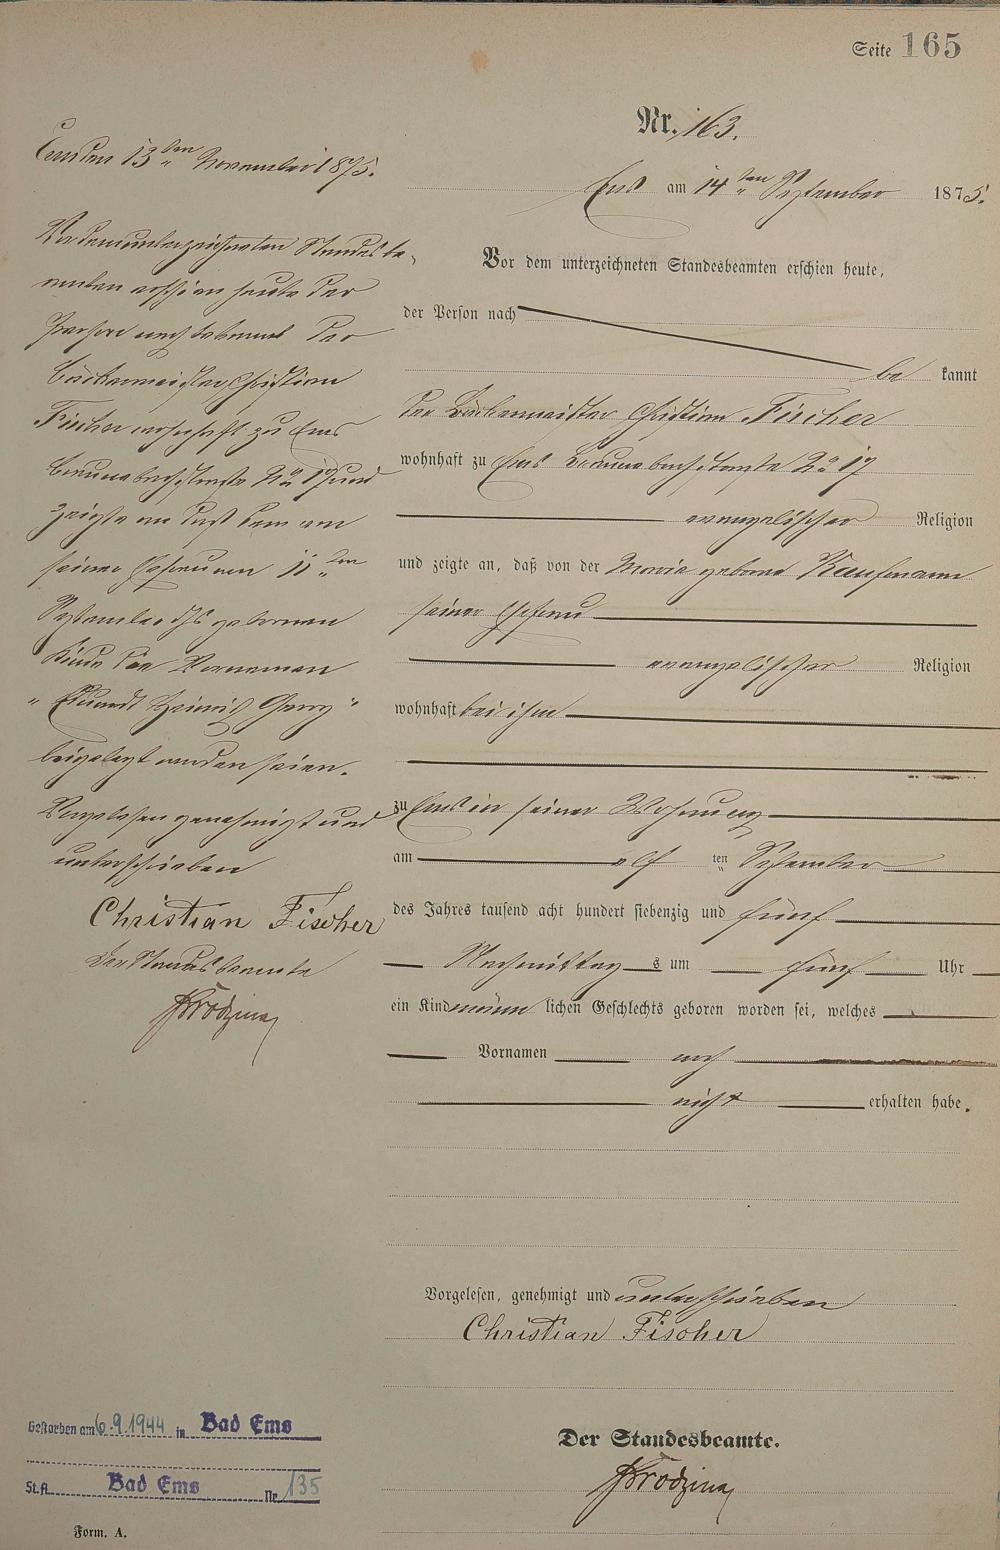 Seite 165
Nr. 163.
Ems am 14ten September 1875.
Vor dem unterzeichneten Standesbeamten erschien heute,
der Person nach
bekannt
der Bäckermeister Christian Fischer
wohnhaft zu Ems Braunebachstraße No 17
evangelischer Religion
und zeigte an, daß von der Maria geborne Kaufmann
seiner Ehefrau
evangelischer Religion
wohnhaft bei ihm
zu Ems in seiner Wohnung
am elf ten September
des Jahres tausend acht hundert siebenzig und fünf
Nachmittags um fünf Uhr
ein Kind männlichen Geschlechts geboren worden sei, welches
Vornamen noch
nicht erhalten habe.
Vorgelesen, genehmigt und unterschrieben
Christian Fischer
Der Standesbeamte.
Ems den 13ten November 1875.
Vor dem unterzeichneten Standesbe-
amten erschien heute der
Person nach bekannt der
Bäckermeister Christian
Fischer wohnhaft zu Ems
Braunebachstraße No 17 und
zeigte an daß dem von
seiner Ehefrau am 11ten
September dJs gebornen
Kinde die Vornamen
"Eduard Heinrich Georg"
beigelegt worden seien.
Vorgelesen genehmigt und
unterschrieben
Christian Fischer
Der Standesbeamte
Gestorben am 6.9.1944 in Bad Ems
St.A. Bad Ems Nr. 135
Form. A.